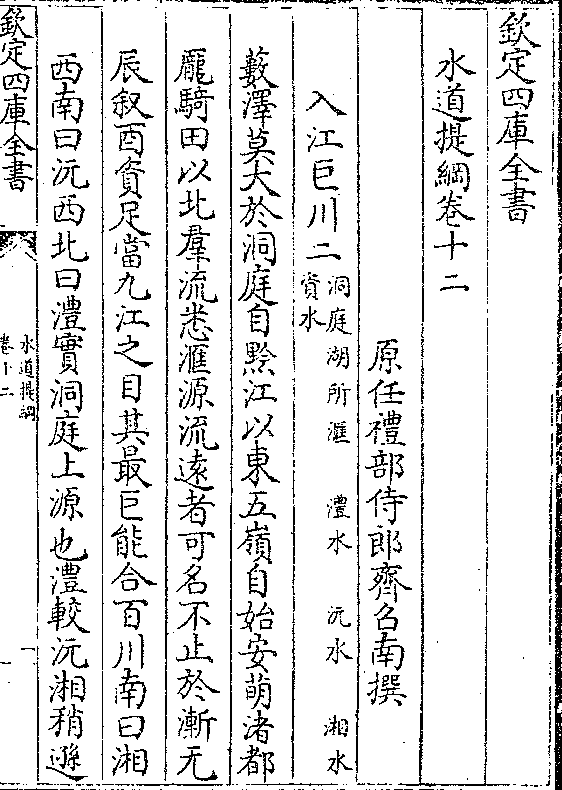 欽定四庫全書
水道提綱卷十二
原任禮部侍郎齊召南撰
入江巨川二 洞庭湖所滙 澧水 沅水 湘水 資水
藪澤莫大於洞庭自黔江以東五嶺自始安萌渚都
龎騎田以北羣流悉滙源流遠者可名不止於漸无
辰叙酉資足當九江之目其最巨能合百川南曰湘
西南曰沅西北曰澧實洞庭上源也澧較沅湘稍遜
欽定四庫全書
水道提綱
卷十二
一